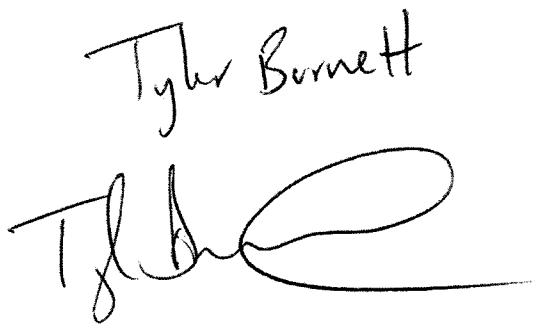 Tyler Burnett